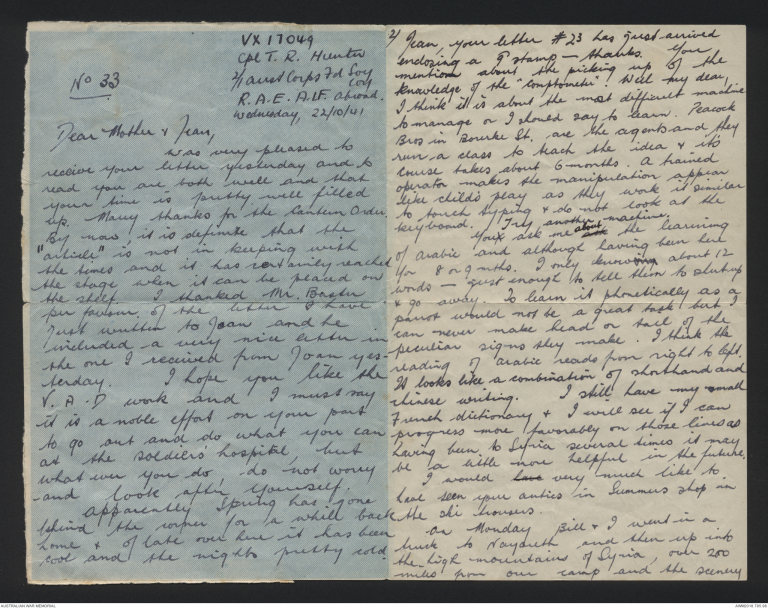 VX 17049
Cpl T. R. Hunter
2/1 Aust Corps Fd Svy Coy
R.A.E. A.I.F. abroad.
No 33
Wednesday, 22/10/41
Dear Mother & Jean,
was very pleased to
receive your letter yesterday and to
read you are both well and that
your time is pretty well filled
up. Many thanks for the Canteen Order.
By now, it is definite that the
"article" is not in keeping with
the times and it has certainly reached
the stage when it can be placed on
the shelf. I thanked Mr.
per favour of the letter & have
just written to Joan and he
included a very nice letter in
the one I received from Joan yes-
terday. I hope you like the
V.A.D work and I must say
it is a noble effort on your part
to go out and do what you can
at the soldiers hospital, but
what ever you do, do not worry
and look after yourself.
Apparently Spring has gone
behind the corner for a while back
home & of late over here it has been
cool and the nights pretty cold
2/ Jean, your letter #23 has just arrived
enclosing a 9d stamp - thanks. You
mention about the picking up of the
knowledge of the "comptometer". Well my dear,
I think it is about the most difficult machine
to manage or I should say to learn. Peacock
Bros in Bourke St. are the agents and they
run a class to teach the idea & its
course takes about 6 months. A trained
operator makes the manipulation appear
like child's play as they work it similar
to touch typing & do not look at the
keyboard. Try another machine.
You ask me about the learning
of arabic and although having been here
for 8 or 9 mths. I only know about 12
words - just enough to tell them to shut up
& go away. To learn it phonetically as a
parrot would not be a great task but I
can never make head or tail of the
peculiar signs they make. I think the
reading of arabic reads from right to left.
It looks like a combination of shorthand and
chinese writing. I still have my small
French dictionary & I will see if I can
progress more favorably on those lines as
having been to Syria several times it may
be a little more helpful in the future.
I would very much like to
have seen your antics in Summers shop in
the ski trousers.
On Monday Bill & I went in a
truck to Nazareth and then up into
the high mountains of Syria, over 200
miles from our camp and the scenery
AUSTRALIAN WAR MEMORIAL